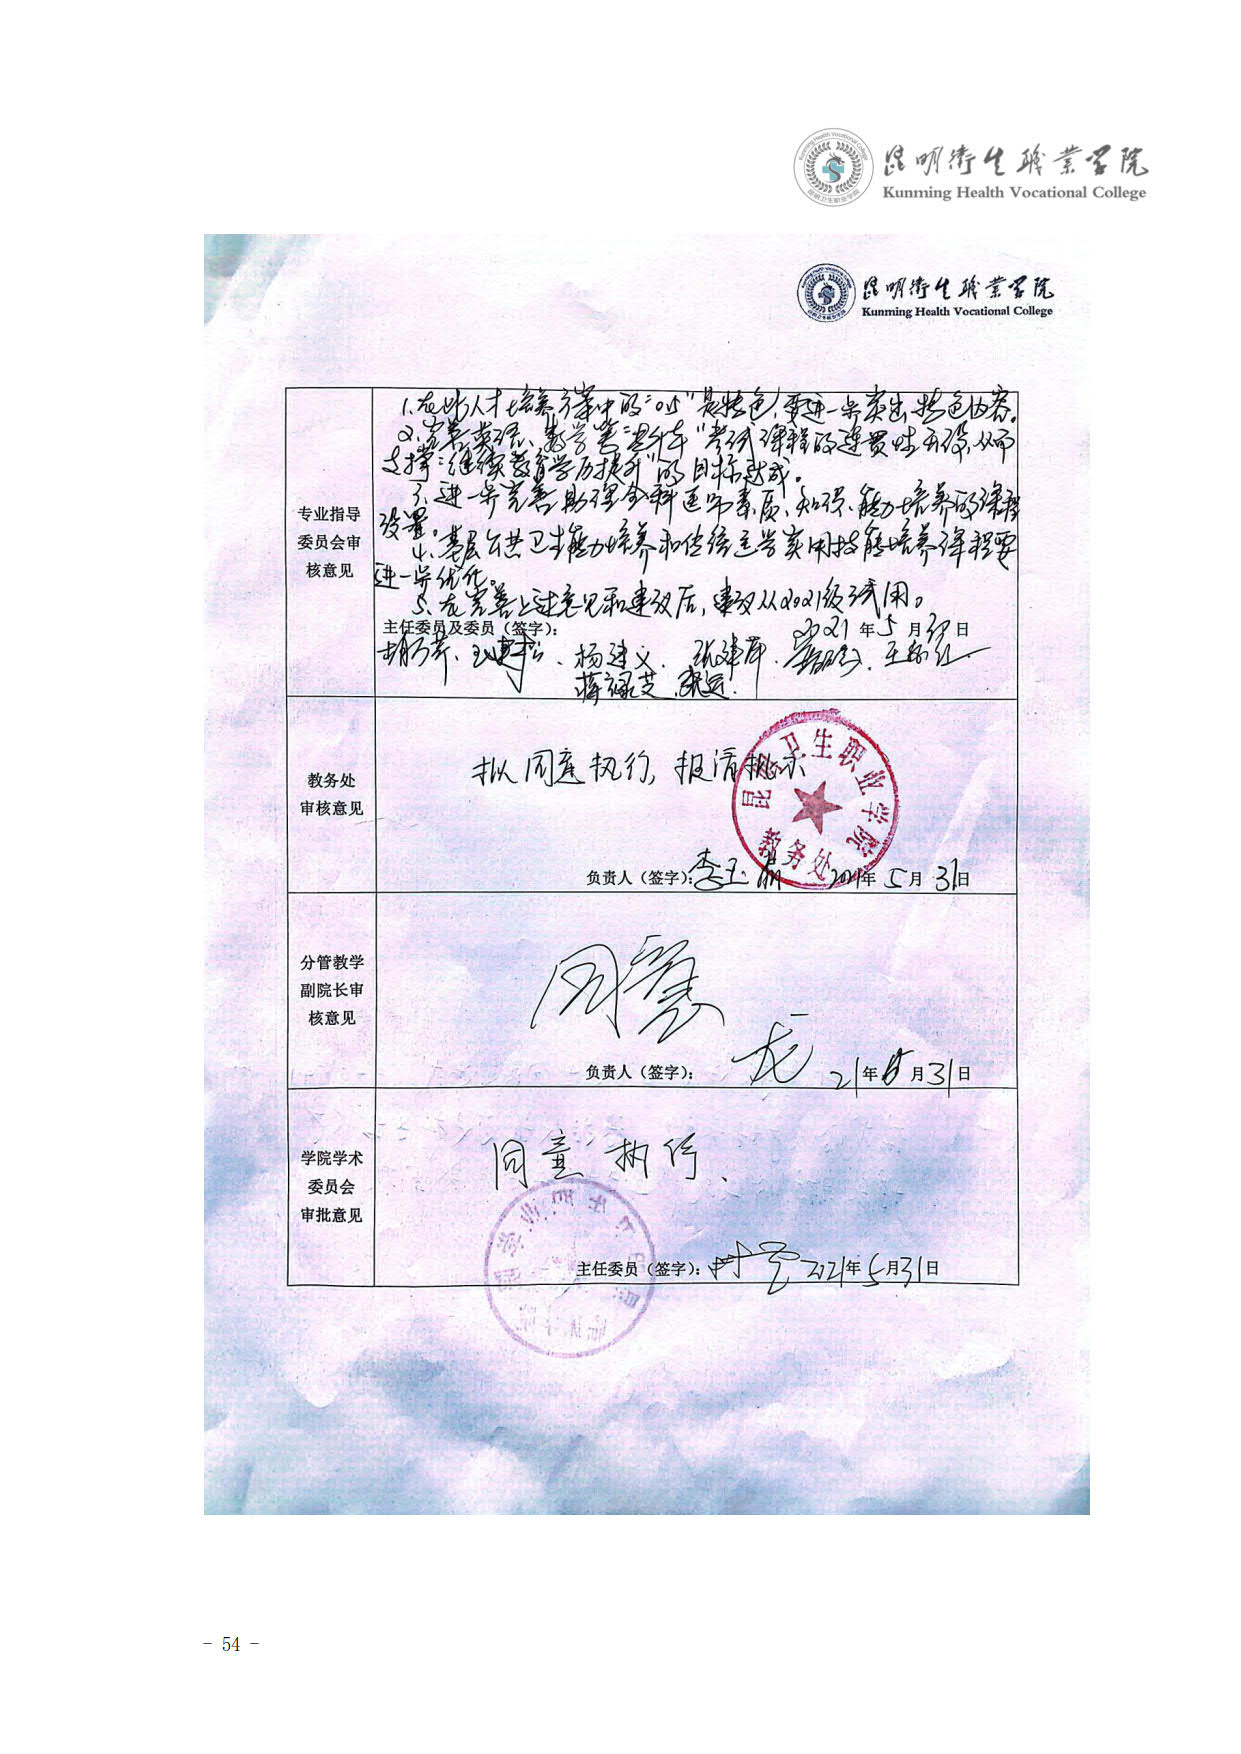 昆明卫生职业学院
Kunming Health Vocational College
昆明卫生职业学院
Kunming Health Vocational College
专业指导
委员会审
核意见
1.在此人才培养方案中的 是特色，要进一步突出特色内容。
2.完善英语、数学等"专升本"考试课程的连贯性开设，从而
支撑"继续教育学历提升"的目标达成。
3.进一步完善助理全科医师素质、知识、能力培养的课程
设置。
4.基层公共卫生能力培养和传统医学实用技能培养课程要
进一步优化。
5.在完善上述意见和建议后，建议从2021级试用。
主任委员及委员（签字）： 2021年5月 日
杨建义
蒋禄芝
教务处
审核意见
拟同意执行，报请批示
昆明卫生职业学院
教务处
负责人（签字）：李玉 2021年5月31日
分管教学
副院长审
核意见
同意
负责人（签字）：龙 21年5月31日
学院学术
委员会
审批意见
同意执行、
主任委员（签字）： 2021年5月31日
- 54 -